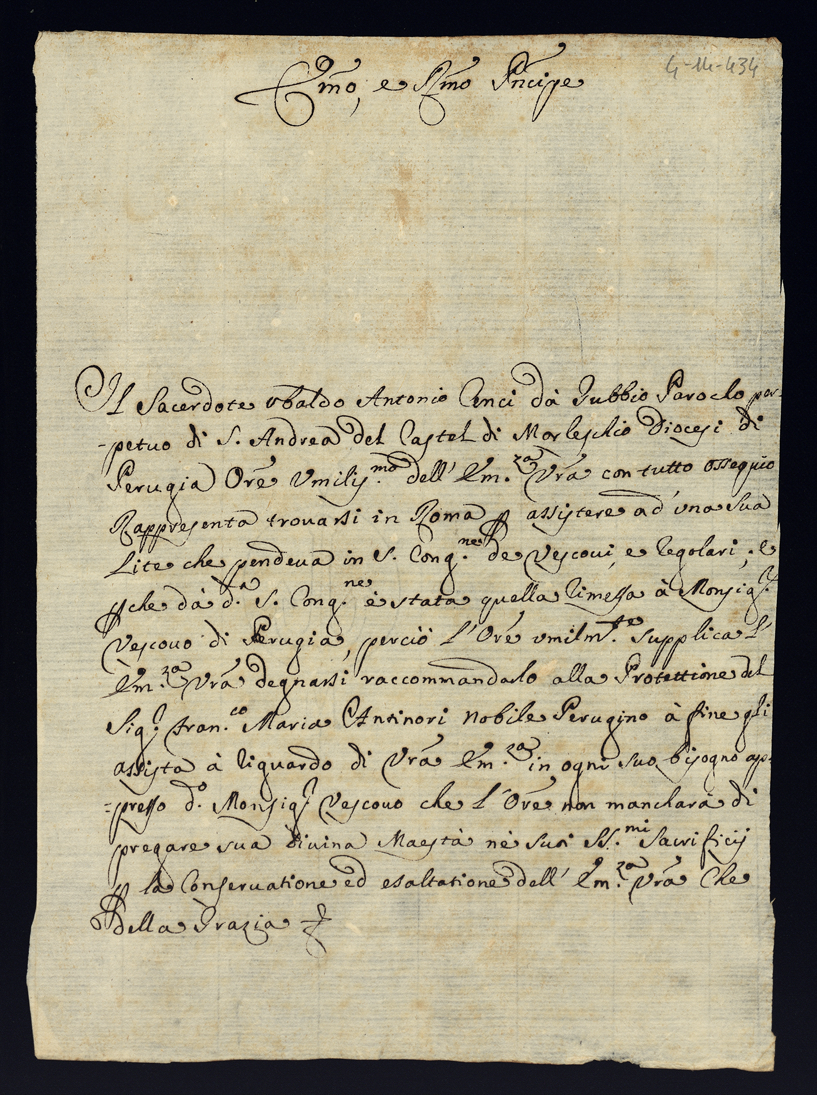 4-14-434
Emo, e Rmo Prncipe
Il Sacerdote Vbaldo Antonio Cenci dà Gubbio Paroclo per-
-petuo di S. Andrea del Castel di Morleschio Diocesi di
Perugia Ore Vmiliss.mo dell' Em.za Vra con tutto ossequio
Rappresenta trovarsi in Roma p assistere ad' una sua
Lite che pendeva in S. Cong.ne de Vescovi, e Regolari; e
pche dà d.a S. Cong.ne è stata quella rimessa à Monsig.r
Vescovo di Perugia, perciò l'Ore vmilm.te supplica l'
Em.za Vra degnarsi raccommandarlo alla Protettione del
Sig.r Fran.co Maria Antinori nobile Perugino à fine gli
assista à riguardo di Vra Em.za in ogni suo bisogno ap-
=presso d.o Monsig.r Vescovo che l'Ore non mancharà di
pregare sua Divina Maestà ne suoi SS.mi Sacrificij
p la Conservatione ed esaltatione dell' Em.za Vra Che
della Grazia